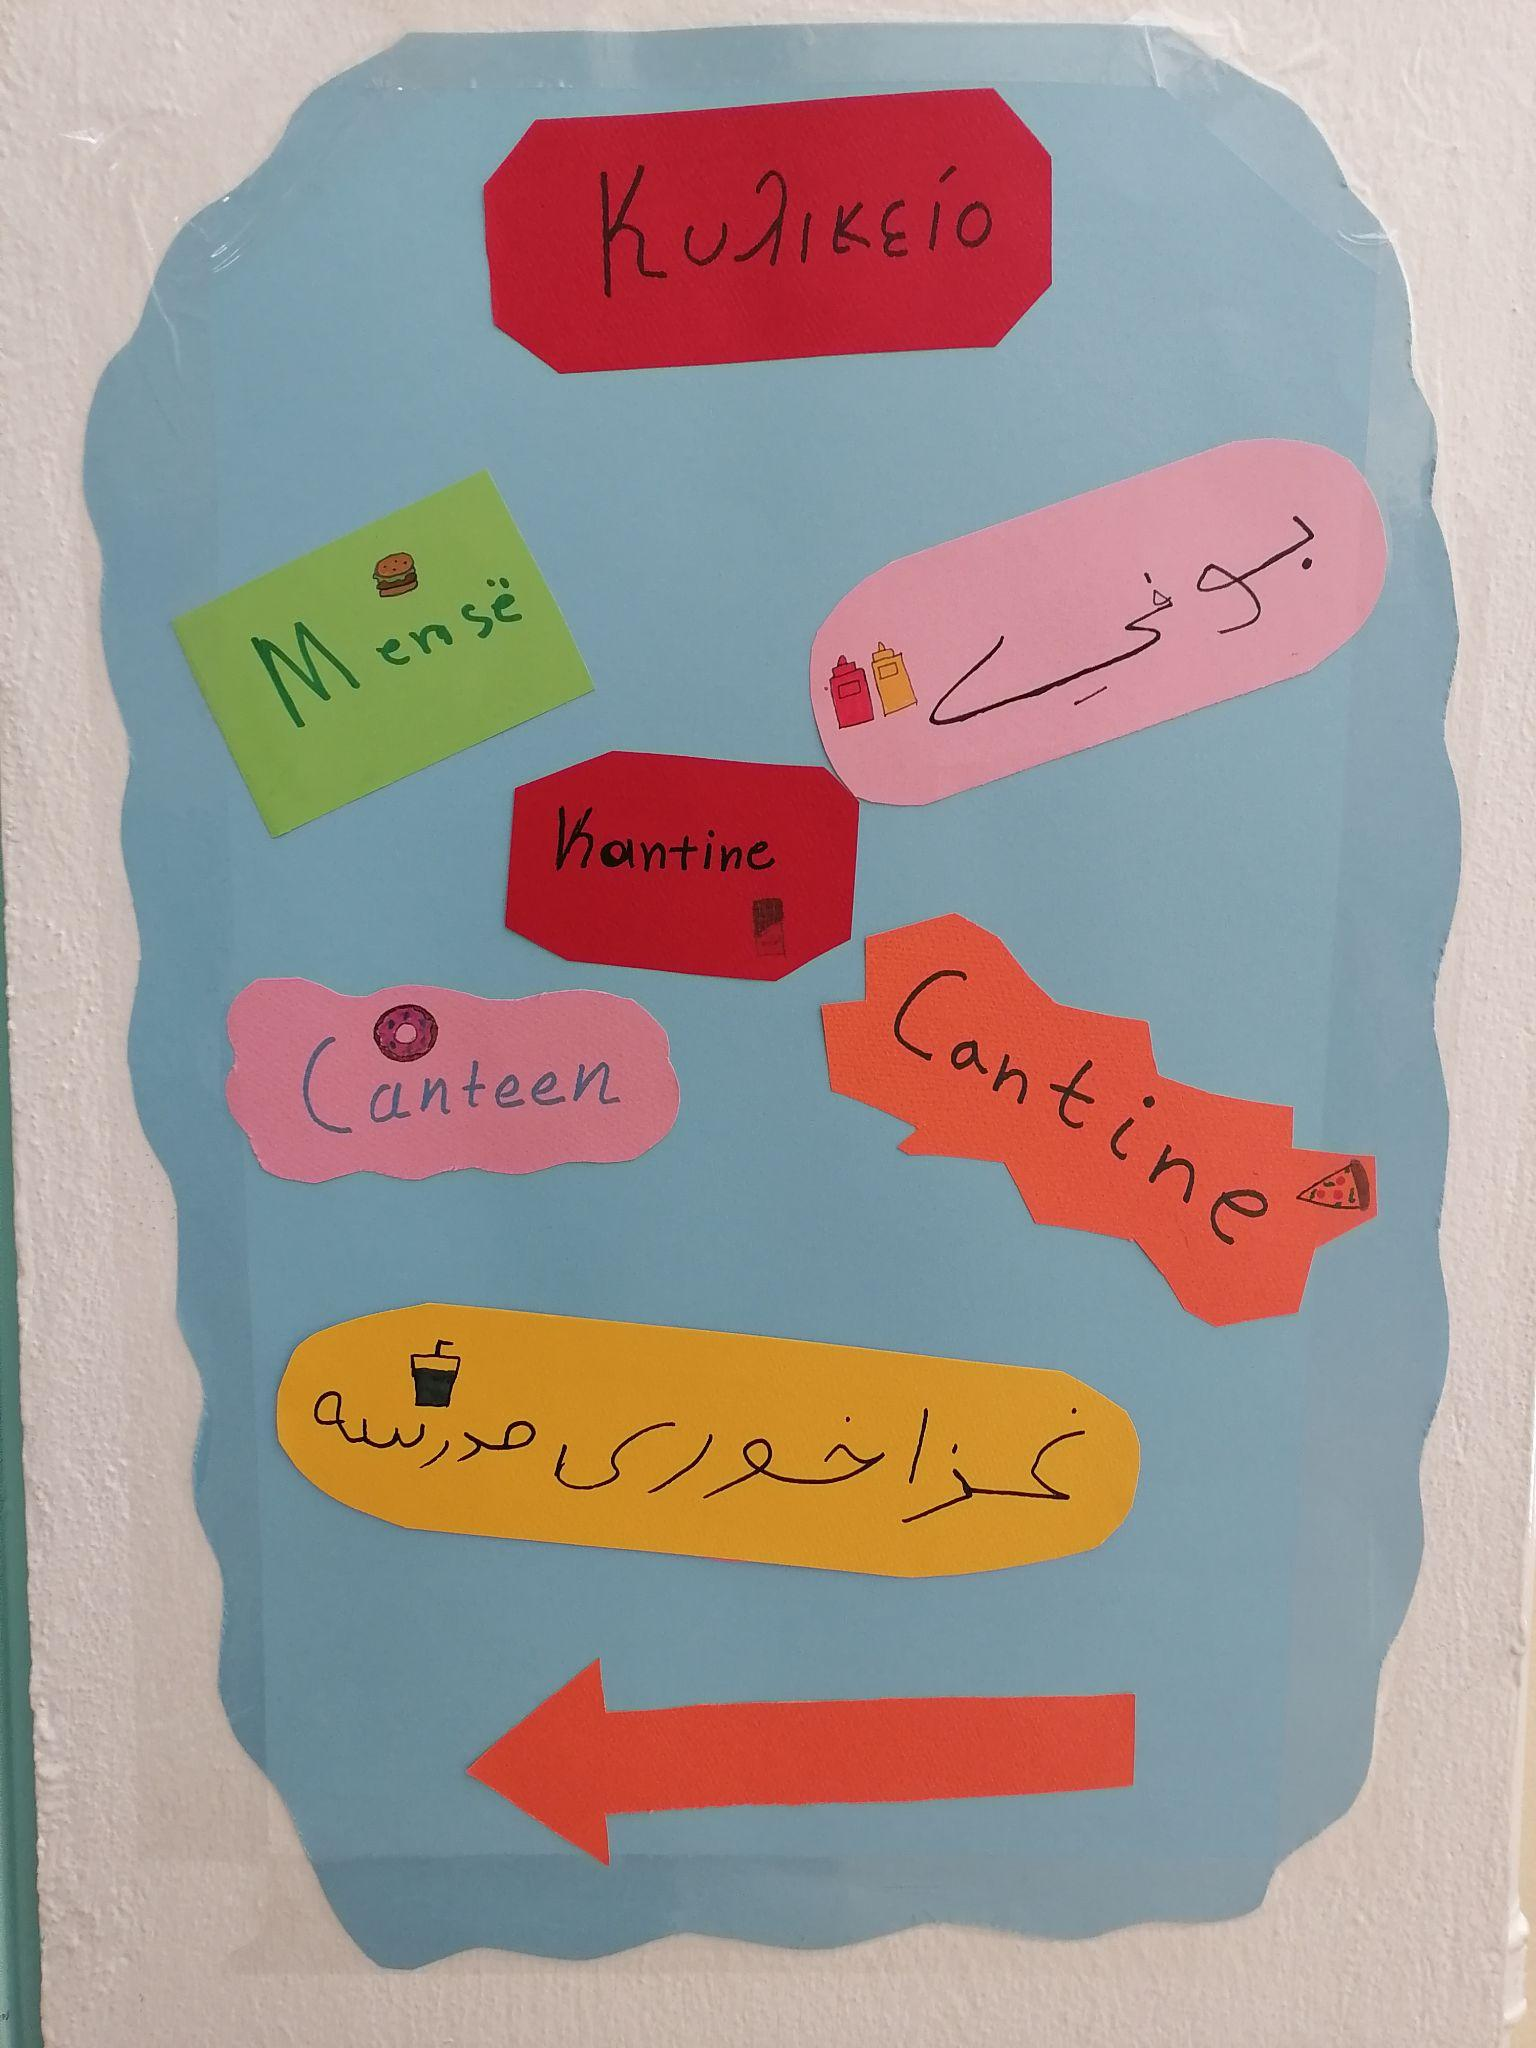 Κυλικείο
Mensë
بوفيه
Kantine
Canteen
Cantine
غذاخوری مدرسه